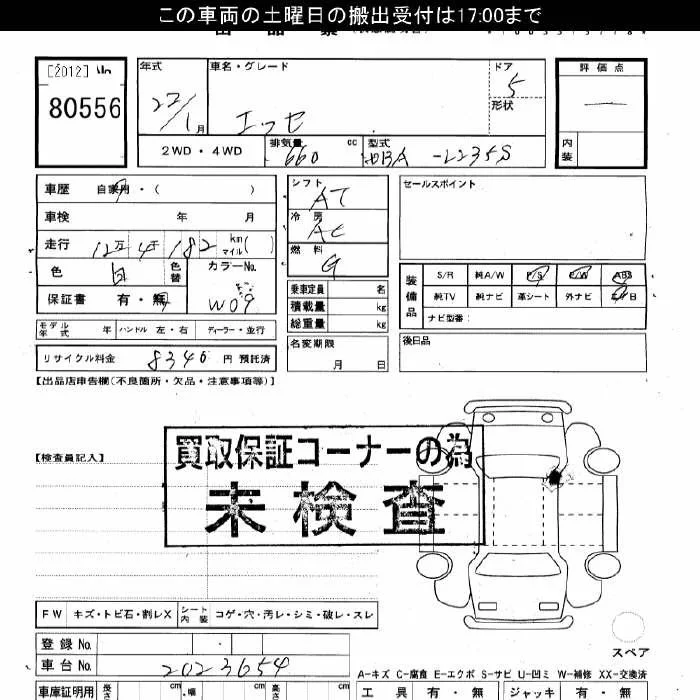 この車両の土曜日の搬出受付は17:00まで
[2012]
80556
年式
22/1月
車名・グレード
エッセ
ドア
5
形状
評価点
—
内装
2WD・4WD
排気量 660 cc
型式 -L235S
車歴 自家用・( )
車検 年 月
走行 12万4千182 km マイル( )
色 白 色替
カラーNo. W09
保証書 有・無
モデル年式 年 ハンドル 左・右 ディーラー・並行
リサイクル料金 8340 円 預託済
シフト AT
冷房 AC
燃料 G
乗車定員 名
積載量 kg
総重量 kg
名変期限
月 日
セールスポイント
装備品
S/R 純A/W P/S P/W ABS
純TV 純ナビ 革シート 外ナビ
ナビ型番:
後日品
【出品店申告欄(不良箇所・欠品・注意事項等)】
【検査員記入】
買取保証コーナーの為
未検査
FW キズ・トビ石・割レX シート内装 コゲ・穴・汚レ・シミ・破レ・スレ
登録No.
車台No. 2023654
スペア
A-キズ C-腐食 E-エクボ S-サビ U-凹ミ W-補修 XX-交換済
車庫証明用 長さ cm 幅 cm 高さ cm
工具 有・無 ジャッキ 有・無